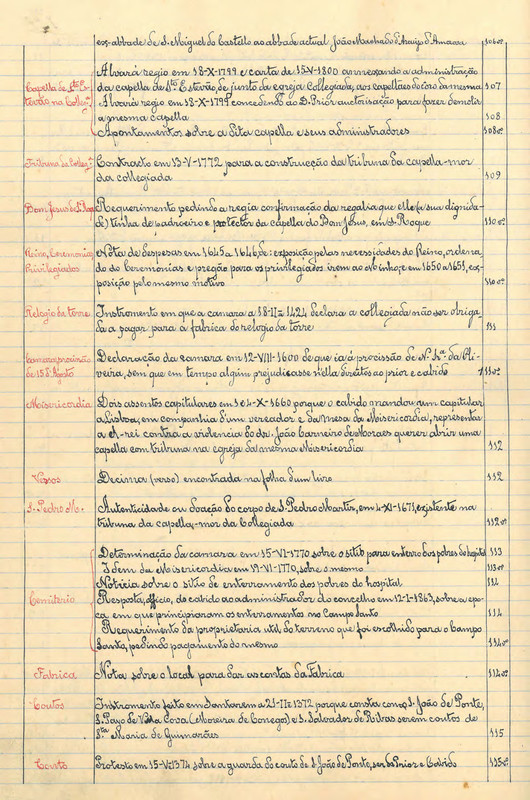 ex-abbade de S. Miguel do Castello ao abbade actual João Machado d'Araujo d'Amaral 106vº
Capella de Stº Estevão na Collegª
Alvará regio em 18-X-1799 e carta de 15-V-1800 annexando a administração
da capella de Stº Estevão de junto da egreja Collegiada, aos capellães do côro da mesma 107
Alvará regio em 18-X-1799 concedendo ao D. Prior auctorisação para fazer demolir
a mesma capella 108
Apontamentos sobre a dita capella e seus administradores 108vº
Tribuna da Collegª
Contracto em 13-V-1772 para a construcção da tribuna da capella-mor
da collegiada 109
Bom Jesus de S. Roque
Requerimento pedindo a regia confirmação da regalia que elle (a sua dignida-
de) tinha de padroeiro e protector da capella do Bom Jesus, em S. Roque 110vº
Reino, Ceremonias, Privilegiados
Nota de despesas em 1645 a 1646, de: exposição pelas necessidades do Reino, ordena-
do do Ceremonias e pregão para os privilegiados irem ao Minho; e em 1650 a 1651, ex-
posição pelo mesmo motivo 110vº
Relogio da torre
Instrumento em que a camara a 18-II-1424 declara a collegiada não ser obriga-
da a pagar para a fabrica do relogio da torre 111
Camara procissão de 15 d'Agosto
Declaração da camara em 12-VIII-1600 de que ia á procissão de N. Srª. da Oli-
veira, sem que em tempo algum prejudicasse n'ella direitos ao prior e cabido 111vº
Misericordia
Dois assentos capitulares em 1 e 4-X-1660 porque o cabido mandou um capitular
a Lisboa, em companhia d'um vereador e da mesa da Misericordia, representar
a el-rei contra a violencia do dr. João Carneiro de Moraes querer abrir uma
capella com tribuna na egreja da mesma Misericordia 112
Versos
Decima (verso) encontrada na folha d'um livro 112
S. Pedro M.
Autenticidade ou doação do corpo de S. Pedro Martyr, em 4-XI-1671, existente na
tribuna da capella-mor da Collegiada 112vº
Cemiterio
Determinação da camara em 15-VI-1770 sobre o sitio para enterro dos pobres do hospital 113
Idem da Misericordia em 19-VI-1770, sobre o mesmo 113vº
Noticia sobre o sitio de enterramento dos pobres do hospital 114
Resposta, officio, do cabido ao administrador do concelho em 12-I-1863, sobre a epo-
ca em que principiaram os enterramentos no Campo Santo 114
Requerimento da proprietaria util do terreno que foi escolhido para o Campo
Santo, pedindo pagamento do mesmo 114vº
Fabrica
Nota sobre o local para dar as contas da Fabrica 114vº
Coutos
Instromento feito em Santarem a 21-II-1372 porque consta como S. João de Ponte,
S. Payo de Villa Cova (Moreira de Conegos) e S. Salvador de Ribas serem coutos de
Stª Maria de Guimarães 115
Couto
Protesto em 15-V-1374 sobre a guarda do couto de S. João de Ponte, ser do Prior e Cabido 115vº